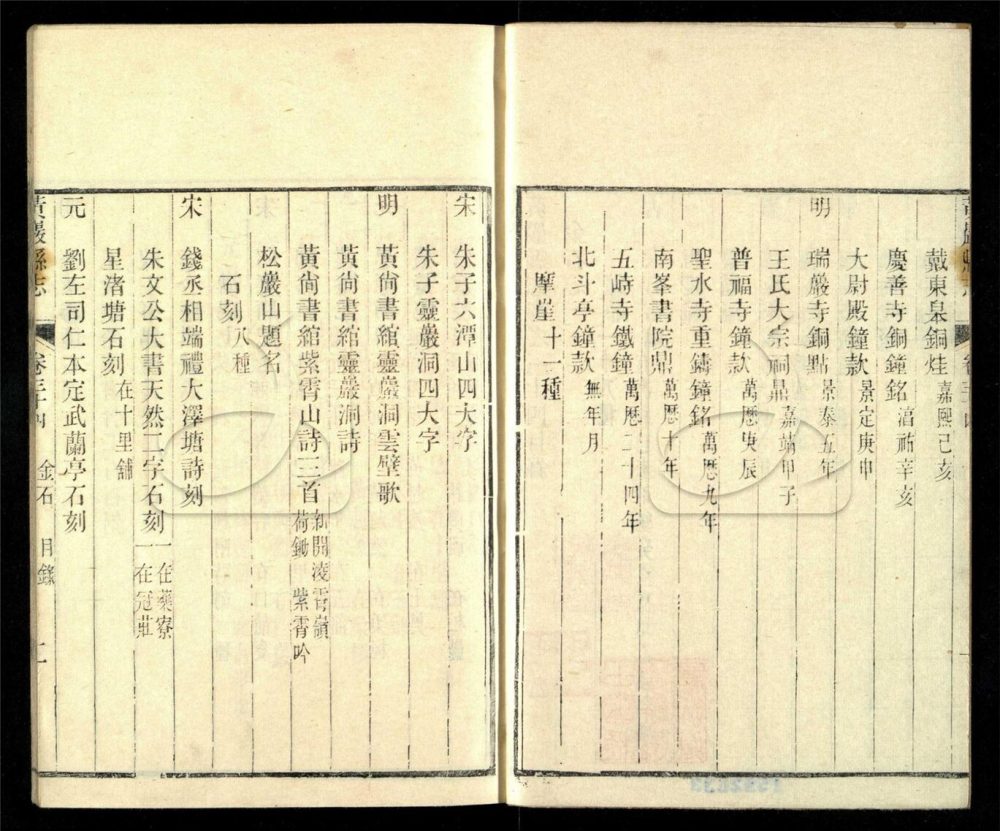 戴東臯銅炷 嘉熙己亥
慶善寺銅鐘銘 淳祐辛亥
大尉殿鐘款 景定庚申
明 瑞巖寺銅點 景泰五年
王氏大宗祠鼎 嘉靖甲子
普福寺鐘款 萬厯庚辰
聖水寺重鑄鐘銘 萬厯九年
南峯書院鼎 萬厯十年
五峙寺鐵鐘 萬厯二十四年
北斗亭鐘款 無年月
摩崖十一種
宋 朱子六潭山四大字
朱子靈巖洞四大字
明 黃尙書綰靈巖洞雲壁歌
黃尙書綰靈巖洞詩
黃尙書綰紫霄山詩三首 新開凌霄嶺 荷鋤 紫霄吟
松巖山題名
石刻八種
宋 錢丞相端禮大澤塘詩刻
朱文公大書天然二字石刻 一在藥寮 一在冠莊
星渚塘石刻 在十里舖
元 劉左司仁本定武蘭亭石刻
黃巖縣志 金石 目錄 二